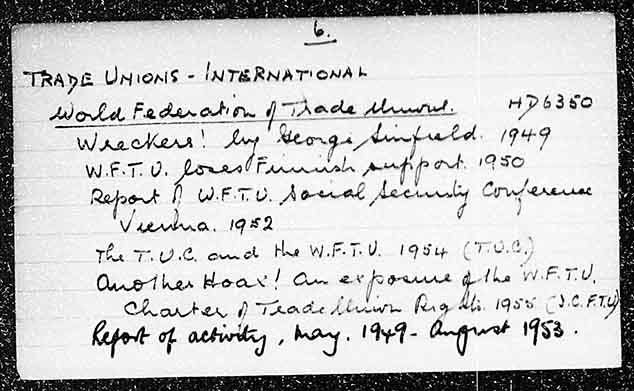 6.
TRADE UNIONS - INTERNATIONAL
World Federation of Trade Unions. HD6350
Wreckers! by George Sinfield. 1949
W.F.T.U. loses Finnish support. 1950
Report of W.F.T.U. Social Security Conference
Vienna. 1952
The T.U.C. and the W.F.T.U. 1954 (T.U.C.)
Another Hoax! An exposure of the W.F.T.U.
Charter of Trade Union Rights. 1955 (I.C.F.T.U)
Report of activity, May. 1949 - August 1953.